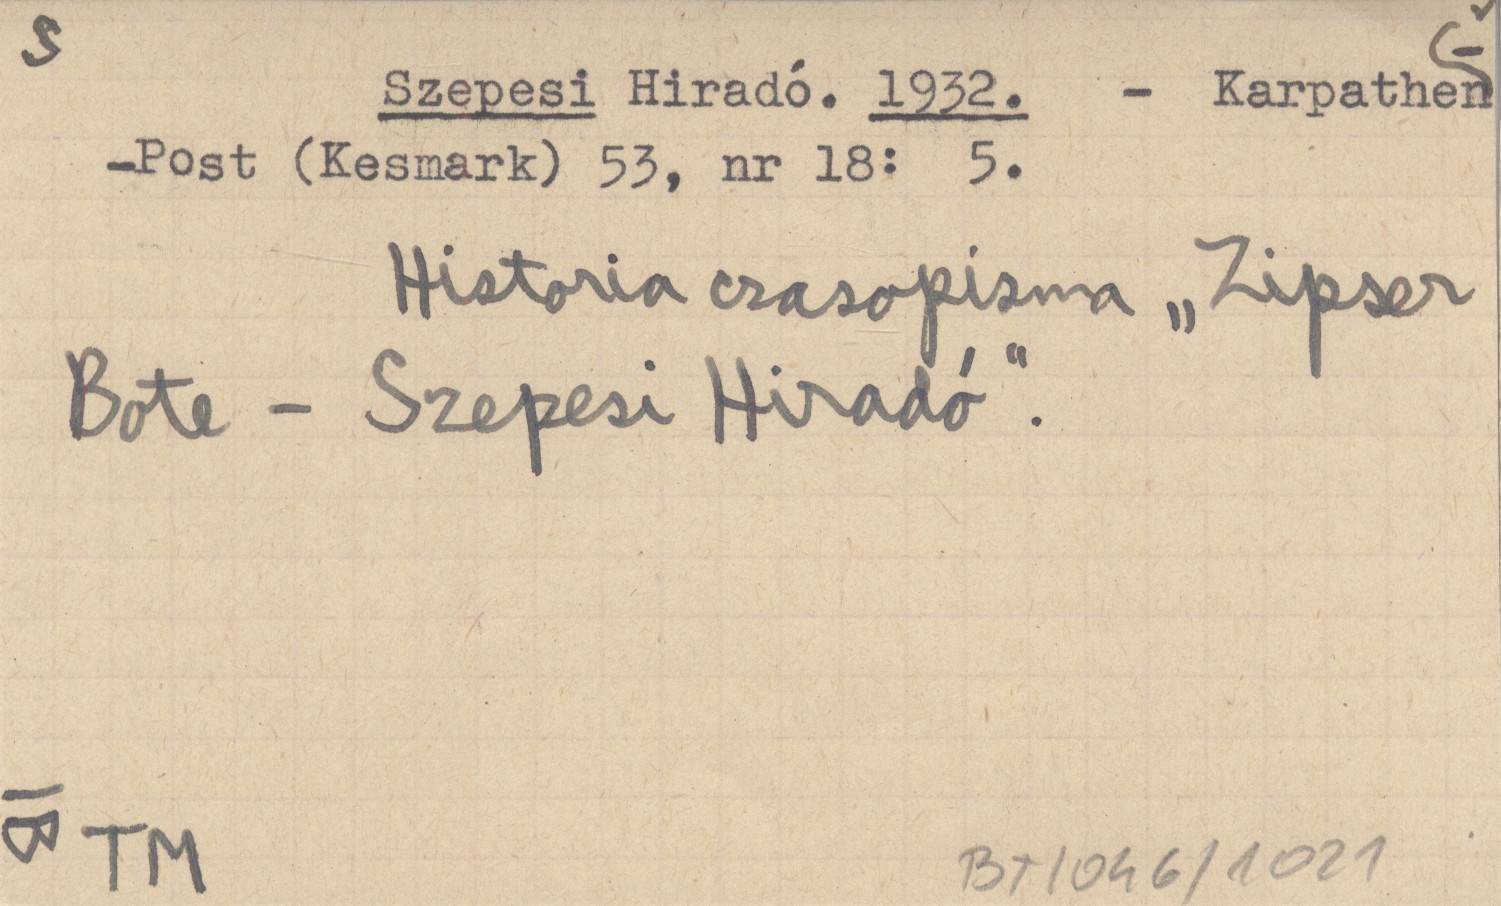 S
Szepesi Hiradó. 1932. - Karpathen
-Post (Kesmark) 53, nr 18: 5.
Historia czasopisma „Zipser
Bote - Szepesi Hiradó".
TM
BT/046/1021